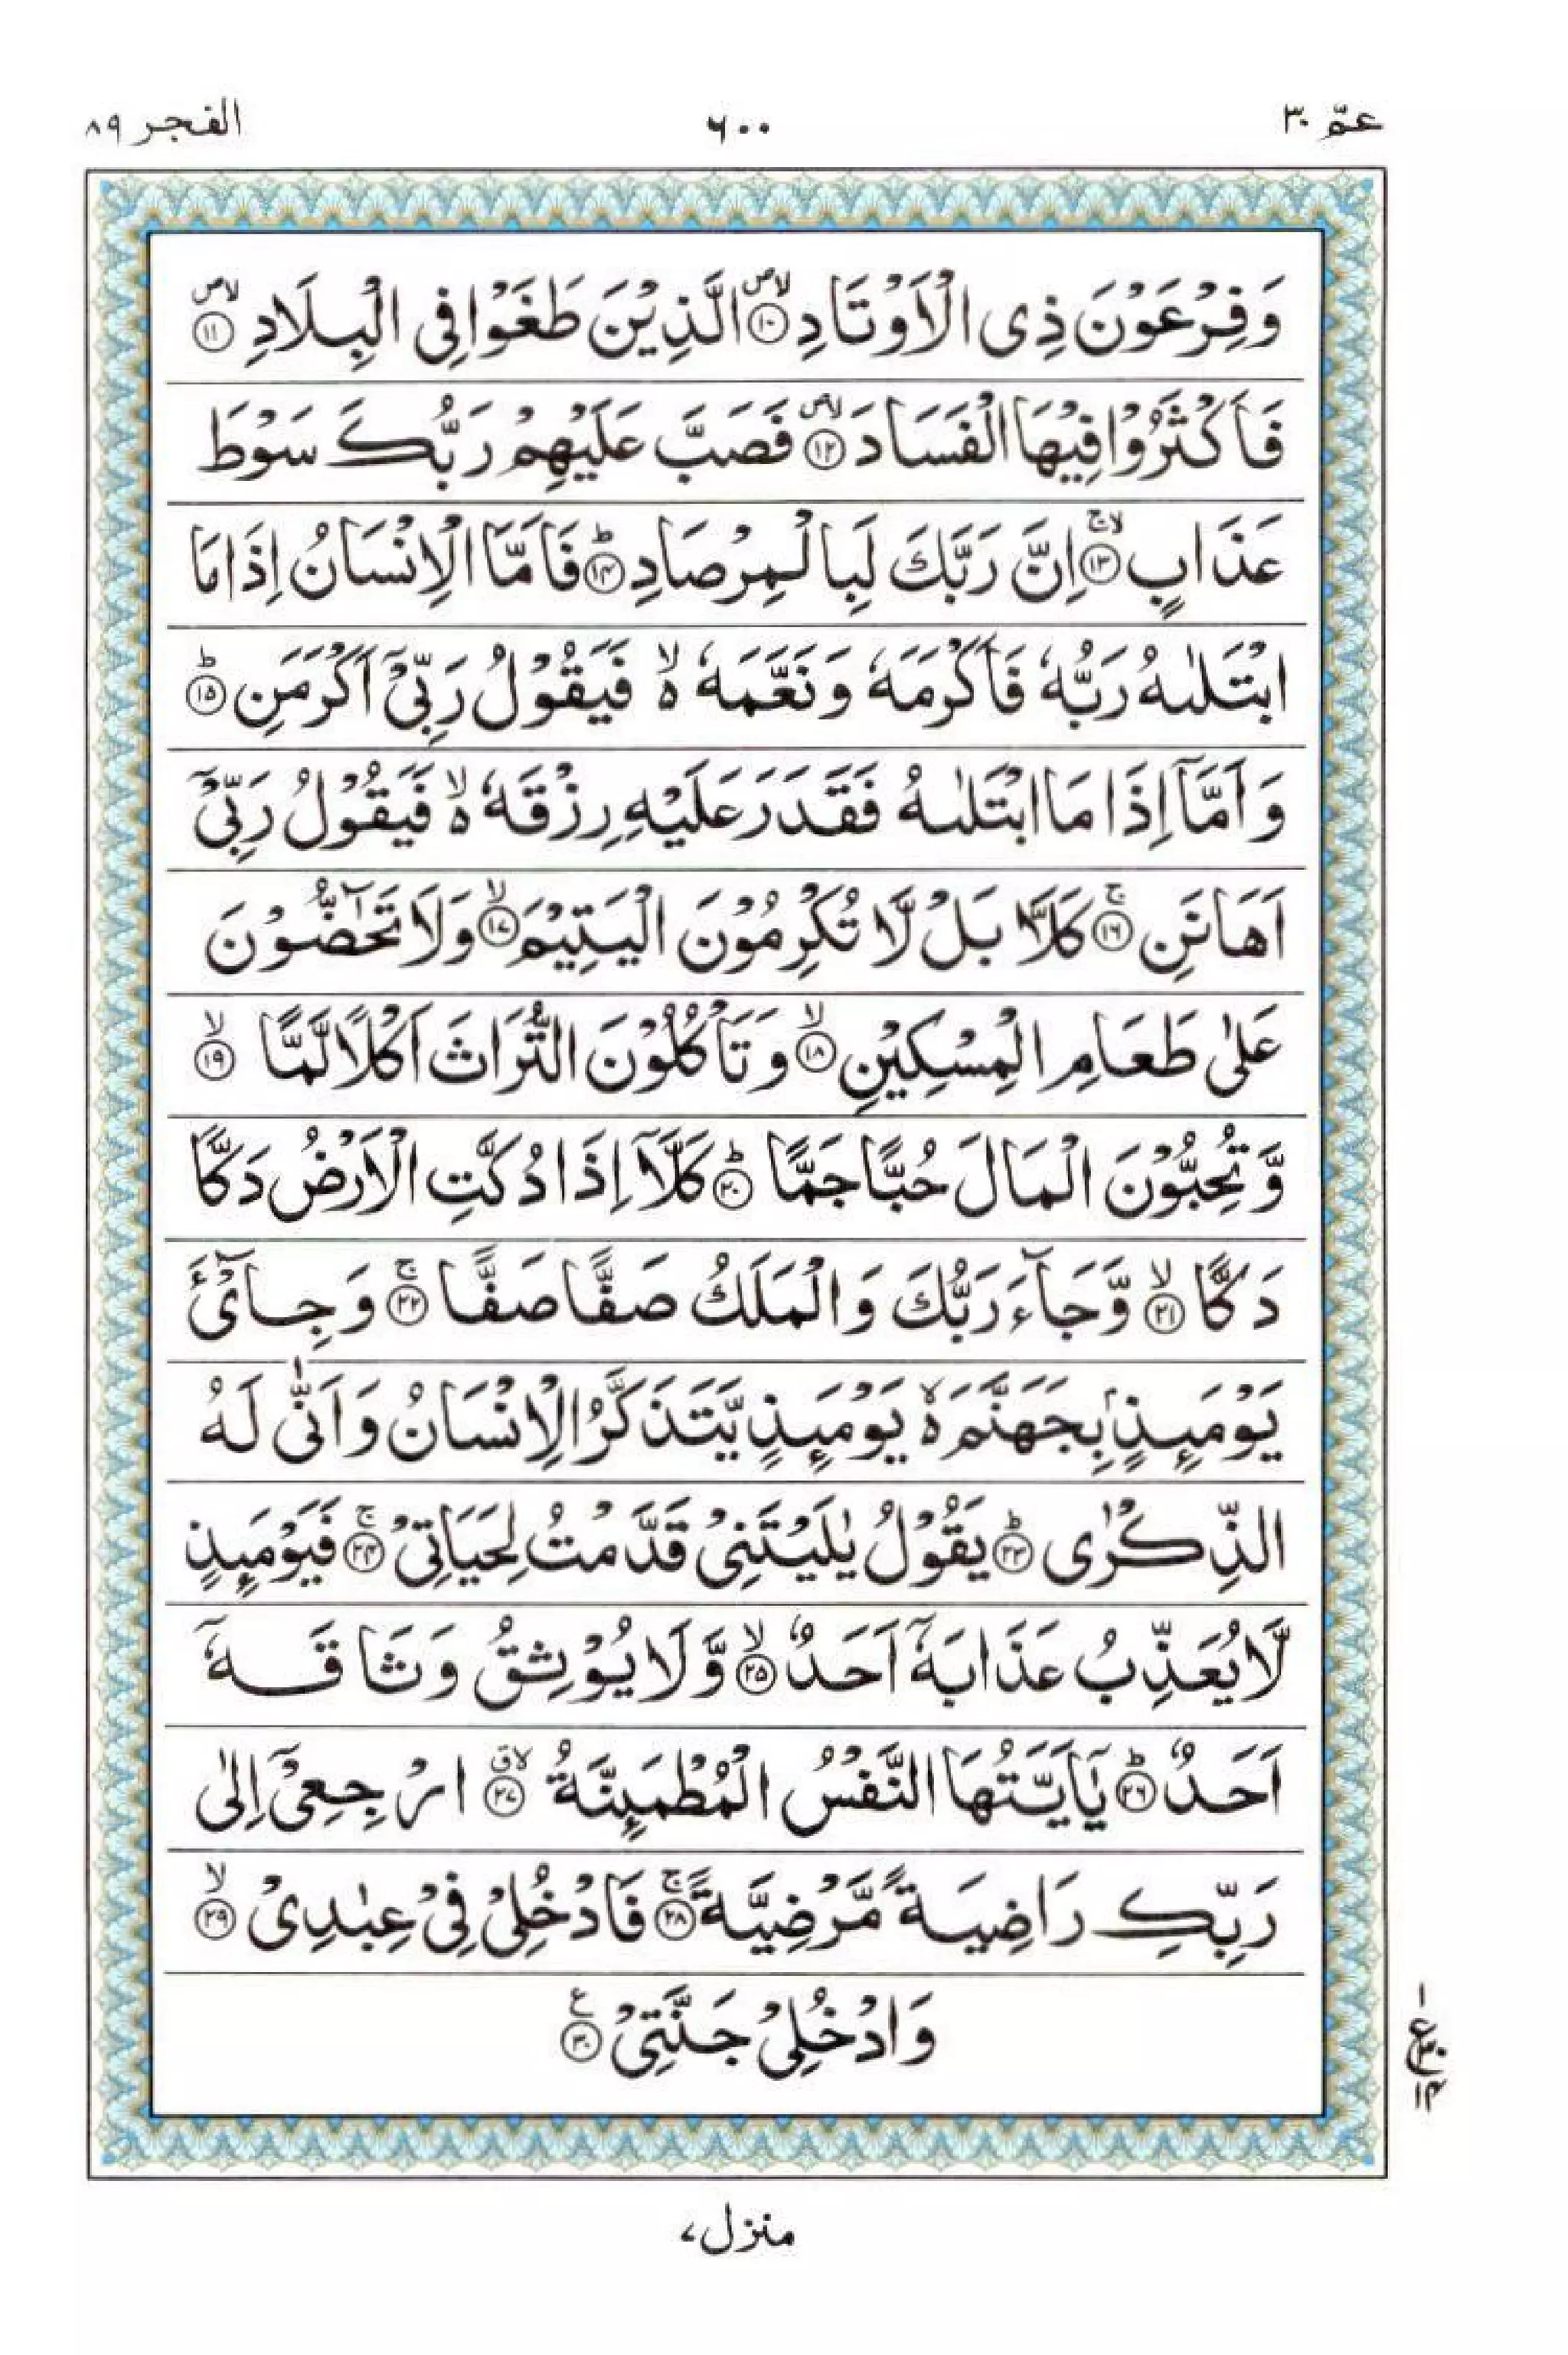 عمّ ٣٠
٦٠٠
الفجر ٨٩
وَفِرْعَوْنَ ذِى الْاَوْتَادِ ۙ۝١٠ الَّذِيْنَ طَغَوْا فِى الْبِلَادِ ۙ۝١١
فَاَكْثَرُوْا فِيْهَا الْفَسَادَ ۙ۝١٢ فَصَبَّ عَلَيْهِمْ رَبُّكَ سَوْطَ
عَذَابٍ ۚۙ۝١٣ اِنَّ رَبَّكَ لَبِالْمِرْصَادِ ؕ۝١٤ فَاَمَّا الْاِنْسَانُ اِذَا مَا
ابْتَلٰىهُ رَبُّهٗ فَاَكْرَمَهٗ وَنَعَّمَهٗ ۙ۬ فَيَقُوْلُ رَبِّىْۤ اَكْرَمَنِ ؕ۝١٥
وَاَمَّاۤ اِذَا مَا ابْتَلٰىهُ فَقَدَرَ عَلَيْهِ رِزْقَهٗ ۙ۬ فَيَقُوْلُ رَبِّىْۤ
اَهَانَنِ ۚ۝١٦ كَلَّا بَلْ لَّا تُكْرِمُوْنَ الْيَتِيْمَ ۙ۝١٧ وَلَا تَحٰٓضُّوْنَ
عَلٰى طَعَامِ الْمِسْكِيْنِ ۙ۝١٨ وَتَاْكُلُوْنَ التُّرَاثَ اَكْلًا لَّمًّا ۙ۝١٩
وَّتُحِبُّوْنَ الْمَالَ حُبًّا جَمًّا ؕ۝٢٠ كَلَّاۤ اِذَا دُكَّتِ الْاَرْضُ دَكًّا
دَكًّا ۙ۝٢١ وَّجَآءَ رَبُّكَ وَالْمَلَكُ صَفًّا صَفًّا ۚ۝٢٢ وَجِاىْٓءَ
يَوْمَئِذٍۭ بِجَهَنَّمَ ۬ۙ يَوْمَئِذٍ يَّتَذَكَّرُ الْاِنْسَانُ وَاَنّٰى لَهُ
الذِّكْرٰى ؕ۝٢٣ يَقُوْلُ يٰلَيْتَنِىْ قَدَّمْتُ لِحَيَاتِىْ ۚ۝٢٤ فَيَوْمَئِذٍ
لَّا يُعَذِّبُ عَذَابَهٗۤ اَحَدٌ ۙ۝٢٥ وَّلَا يُوْثِقُ وَثَاقَهٗۤ
اَحَدٌ ؕ۝٢٦ يٰۤاَيَّتُهَا النَّفْسُ الْمُطْمَئِنَّةُ ۖۗ۝٢٧ ارْجِعِىْۤ اِلٰى
رَبِّكِ رَاضِيَةً مَّرْضِيَّةً ۚ۝٢٨ فَادْخُلِىْ فِىْ عِبٰدِىْ ۙ۝٢٩
وَادْخُلِىْ جَنَّتِىْ ۝٣٠ ع
١
ع ٣٠
١٤
منزل ٧